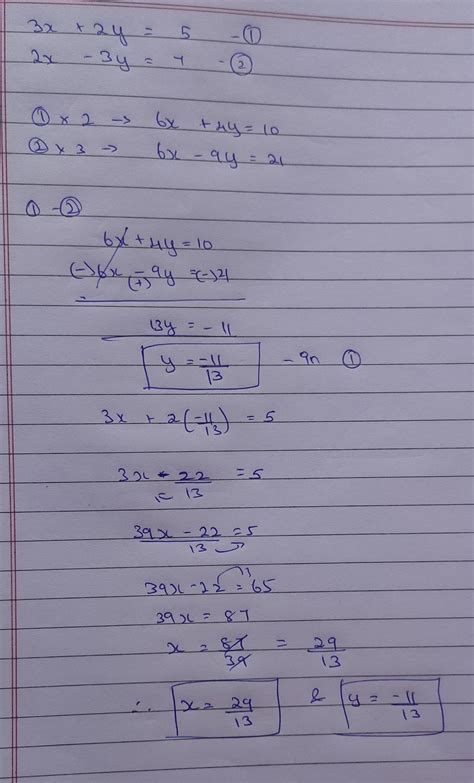 3x + 2y = 5 - ①
2x - 3y = 7 - ②
① × 2 → 6x + 4y = 10
② × 3 → 6x - 9y = 21
① - ②
6x + 4y = 10
(-) 6x - 9y = (-) 21
(+)
13y = -11
y = -11/13 - 9n ①
3x + 2(-11/13) = 5
3x - 22/13 = 5
39x - 22/13 = 5
39x - 22 = 65
39x = 87
x = 87/39 = 29/13
∴ x = 29/13 & y = -11/13